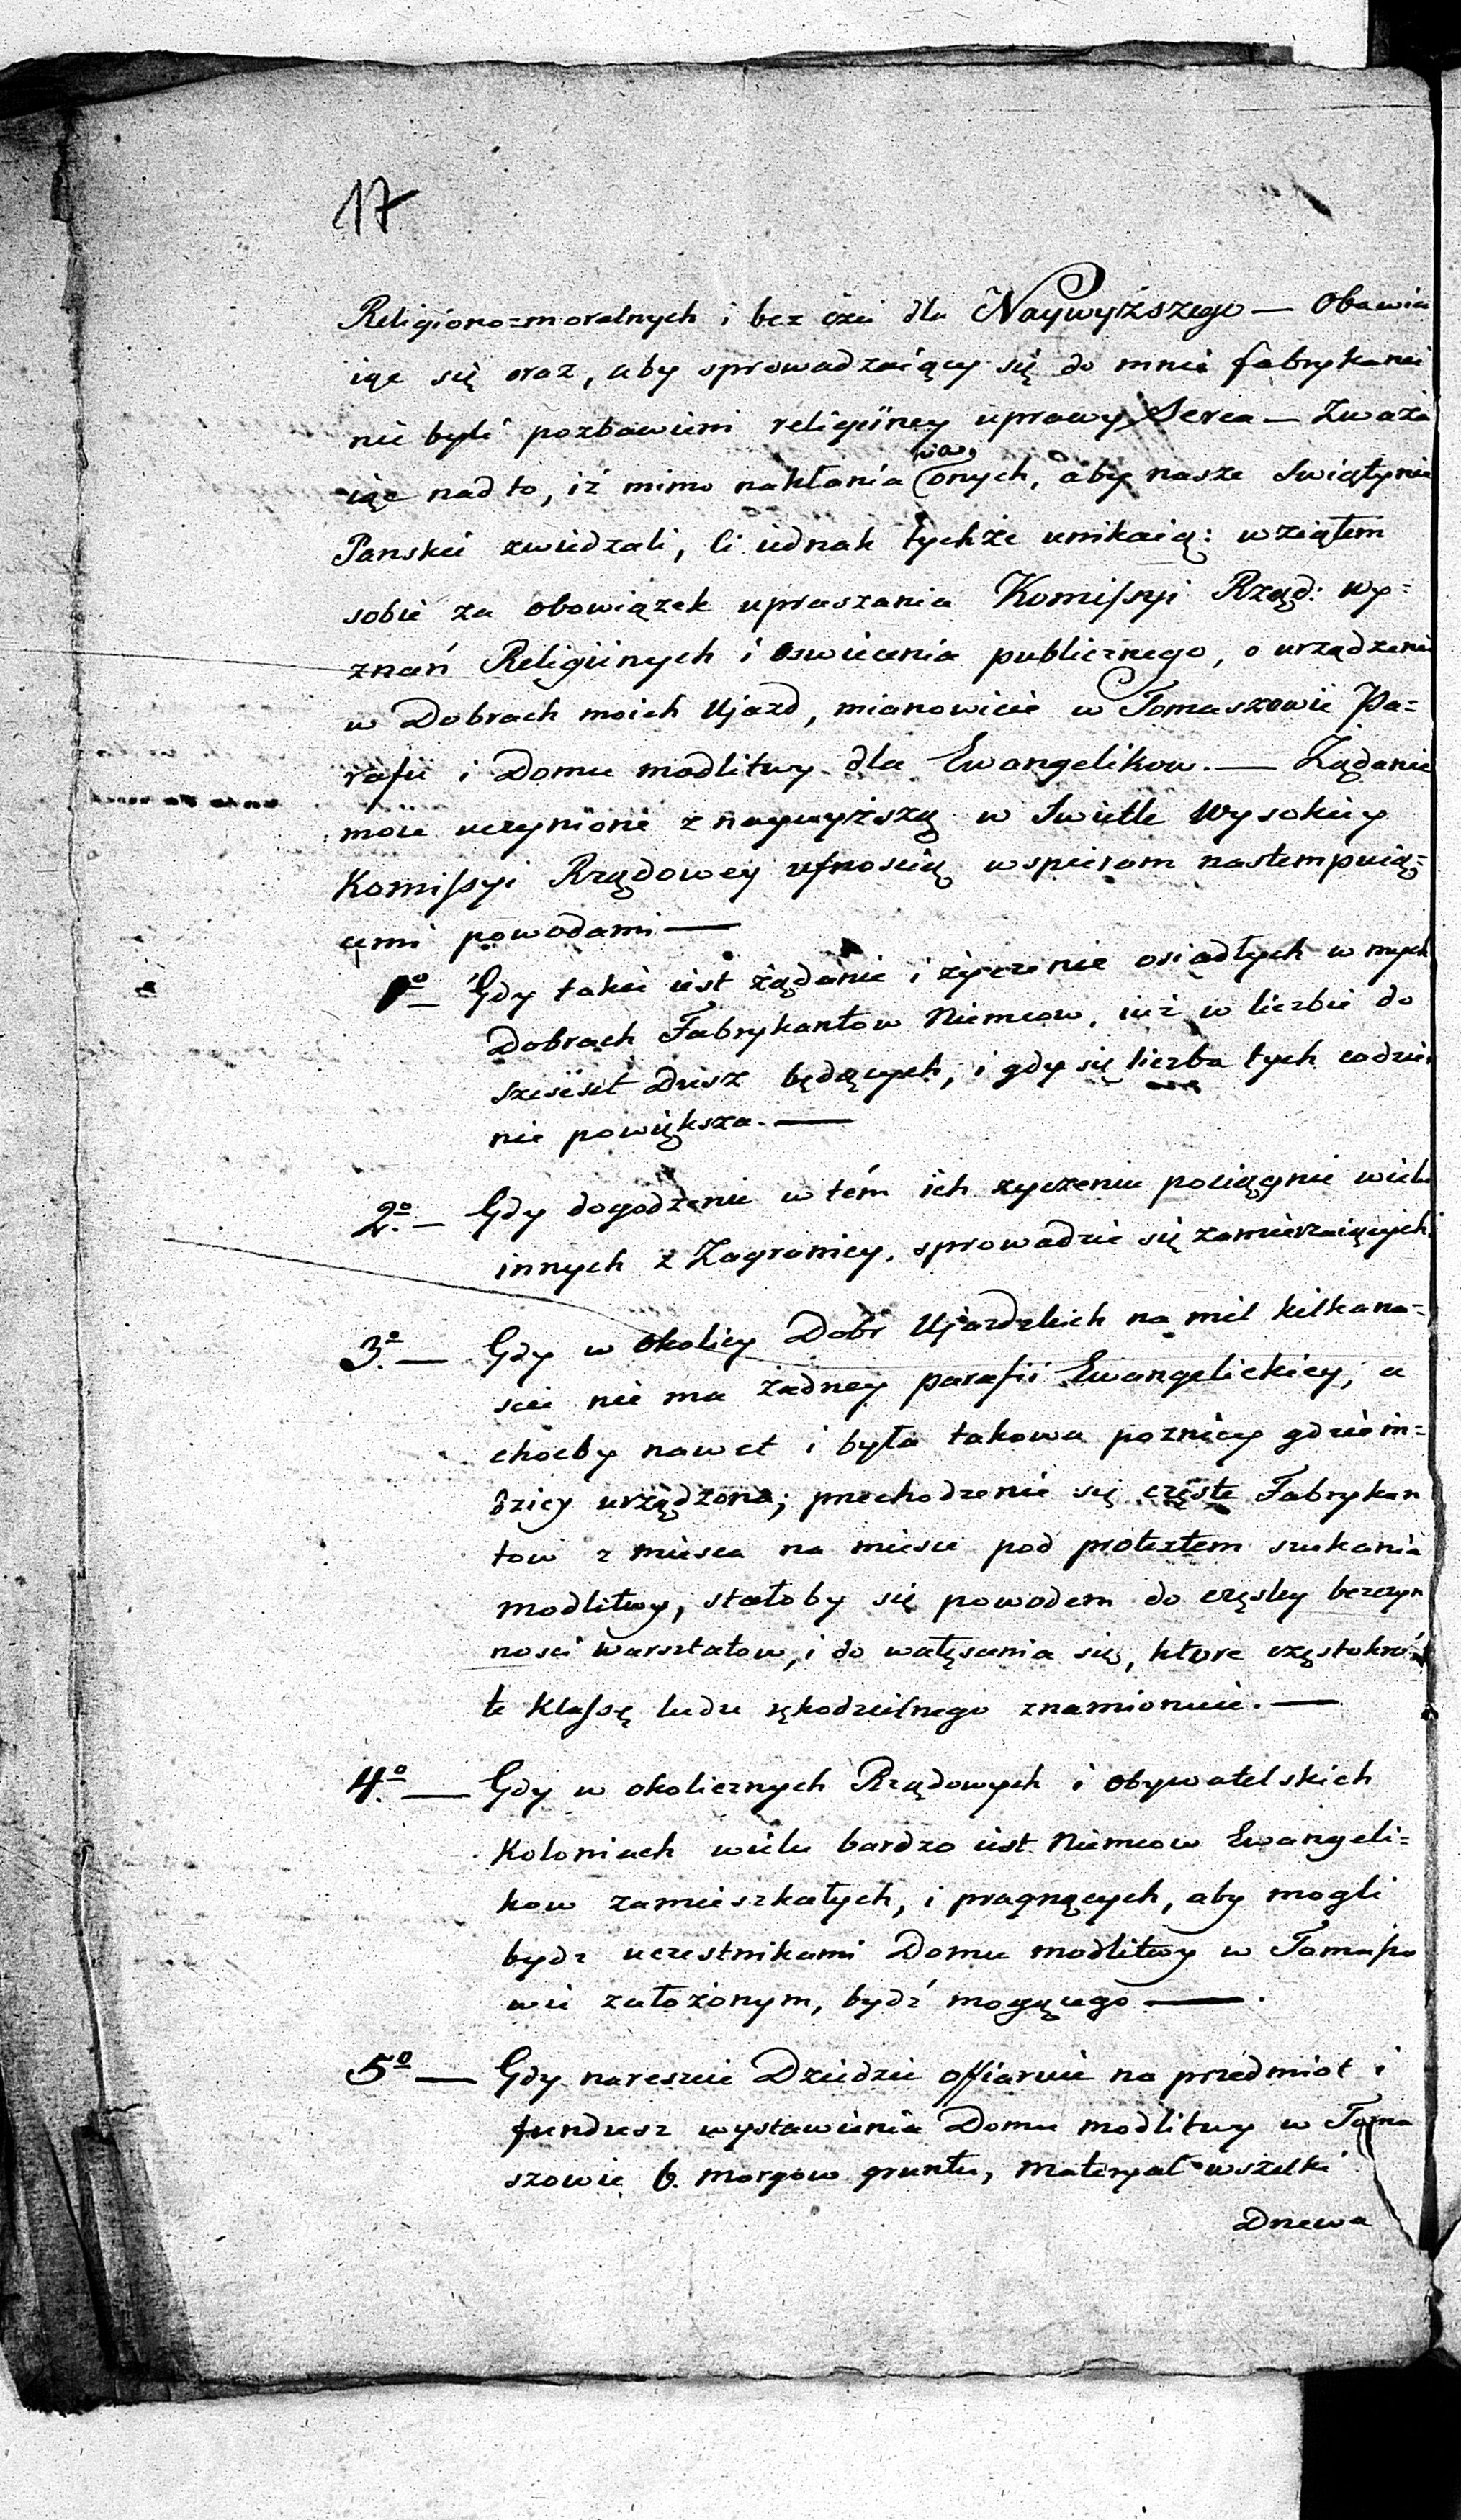 17
Religiono=moralnych i bez czci dla Naywyższego — Obawia
iąc się oraz, aby sprowadzaiący się do mnie fabrykanci
nie byli pozbawieni religiiney uprawy Serca — Zważa
iąc nad to, iż mimo nakłania
nia
onych, aby nasze Swiątynie
Panskie zwiedzali, Ci iednak tychże unikaią: wziąłem
sobie za obowiązek upraszania Komissyi Rząd: wy=
znań Religiinych i oswiecenia publicznego, o urządzenie
w Dobrach moich Ujazd, mianowicie w Tomaszowie Pa=
rafii i Domu modlitwy dla Ewangelikow. — Żądanie
moie uczynione z naywyższą w Swietle Wysokiey
Komissyi Rządowey ufnością wspieram nastempuią=
cemi powodami —
1º — Gdy takie iest żądanie i życzenie osiadłych w mych
Dobrach Fabrykantow Niemcow, iuż w liczbie do
sześćset Dusz będących, i gdy się liczba tych codzien
nie powiększa. —
2º — Gdy dogodzenie w tém ich zyczeniu pociągnie wielu
innych z Zagranicy, sprowadzić się zamierzaiących.
3º — Gdy w okolicy Dobr Ujazdzkich na mil kilkana=
scie nie ma żadney parafii Ewangelickiey, a
chocby nawet i była takowa pozniey gdziein=
dziey urządzona; przechodzenie się częste Fabrykan
tow z mieysca na mieysce pod protextem szukania
modlitwy, stałoby się powodem do częstey bezczyn
nosci warsztatow, i do wałęsania się, ktore częstokroć
te Klassę ludu rękodzielnego znamionuie. —
4º — Gdy w okolicznych Rządowych i obywatelskich
Koloniach wielu bardzo iest Niemcow Ewangeli=
kow zamieszkałych, i pragnących, aby mogli
bydz uczestnikami Domu modlitwy w Tomaszo
wie założonym, bydź mogącego —.
5º — Gdy nareszcie Dziedzic offiaruie na przedmiot i
fundusz wystawienia Domu modlitwy w Toma
szowie 6. morgow gruntu, materyał wszelki
Drzewa